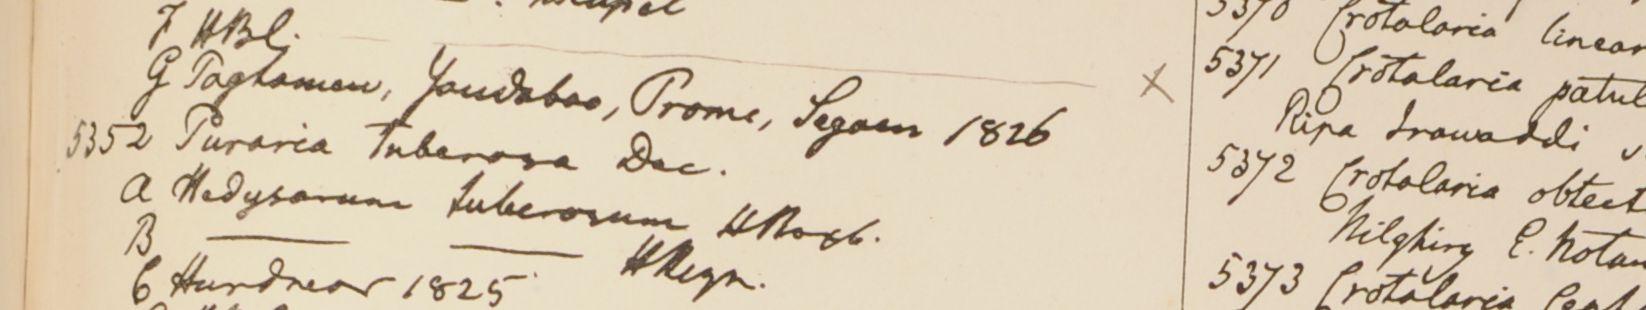 F HBl.
G Taghamew, Yandaboo, Prome, Segaen 1826
5352 Puraria tuberosa Dec.
a Hedysarum tuberosum HRoxb.
B
C Hurdwar 1825
5370 Crotalaria linear
5371 Crotalaria patul
Ripa Irawaddi
5372 Crotalaria obtect
Nilghiry E. Notan
5373 Crotalaria